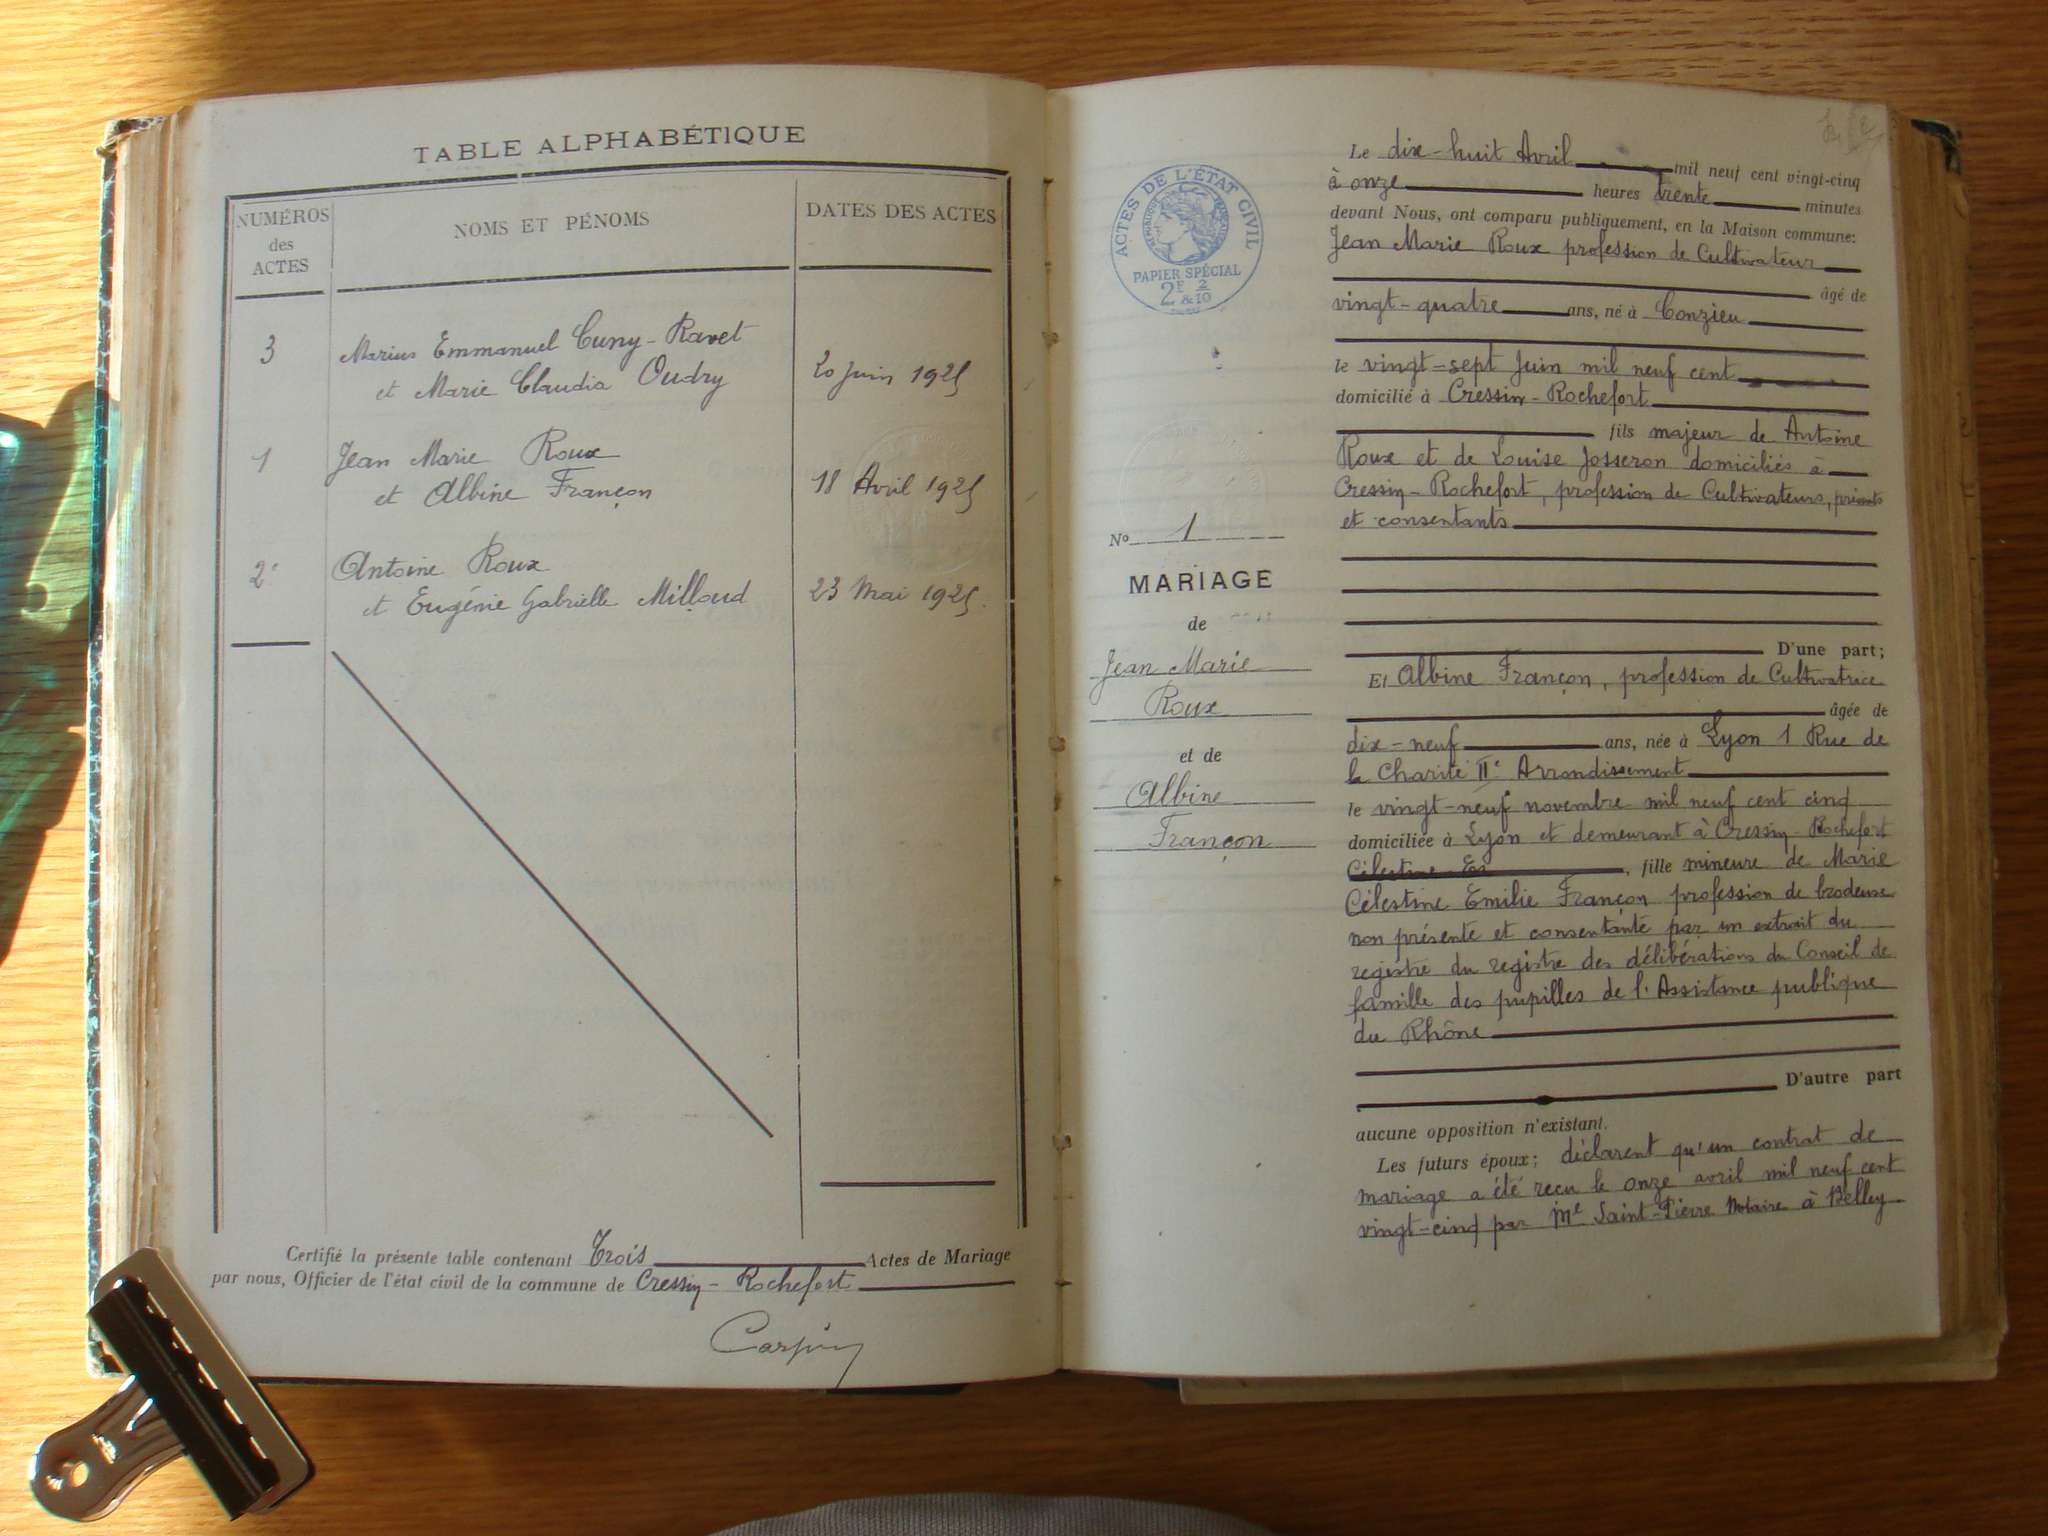 TABLE ALPHABÉTIQUE
NUMÉROS
des
ACTES
NOMS ET PÉNOMS
DATES DES ACTES
3
Marius Emmanuel Cuny-Ravet
et Marie Claudia Oudry
20 Juin 1925
1
Jean Marie Roux
et Albine Françon
18 Avril 1925
2
Antoine Roux
et Eugénie Gabrielle Millaud
23 Mai 1925.
Certifié la présente table contenant Trois Actes de Mariage
par nous, Officier de l'état civil de la commune de Cressin-Rochefort
ACTES DE L'ÉTAT CIVIL
RÉPUBLIQUE FRANÇAISE
PAPIER SPÉCIAL
2F 2
& 10
No 1
MARIAGE
de
Jean Marie
Roux
et de
Albine
Françon
Le dix-huit Avril mil neuf cent vingt-cinq
à onze heures trente minutes
devant Nous, ont comparu publiquement, en la Maison commune:
Jean Marie Roux profession de Cultivateur
âgé de
vingt-quatre ans, né à Conzieu
le vingt-sept Juin mil neuf cent
domicilié à Cressin-Rochefort
fils majeur de Antoine
Roux et de Louise Josseron domiciliés à
Cressin-Rochefort, profession de Cultivateurs, présents
et consentants
D'une part;
Et Albine Françon, profession de Cultivatrice
âgée de
dix-neuf ans, née à Lyon 1 Rue de
la Charité IIe Arrondissement
le vingt-neuf novembre mil neuf cent cinq
domiciliée à Lyon et demeurant à Cressin-Rochefort
Célestine Es, fille mineure de Marie
Célestine Emilie Françon profession de brodeuse
non présente et consentante par un extrait du
registre du registre des délibérations du Conseil de
famille des pupilles de l'Assistance publique
du Rhône
D'autre part
aucune opposition n'existant.
Les futurs époux; déclarent qu'un contrat de
mariage a été reçu le onze avril mil neuf cent
vingt-cinq par Me Saint-Pierre Notaire à Belley